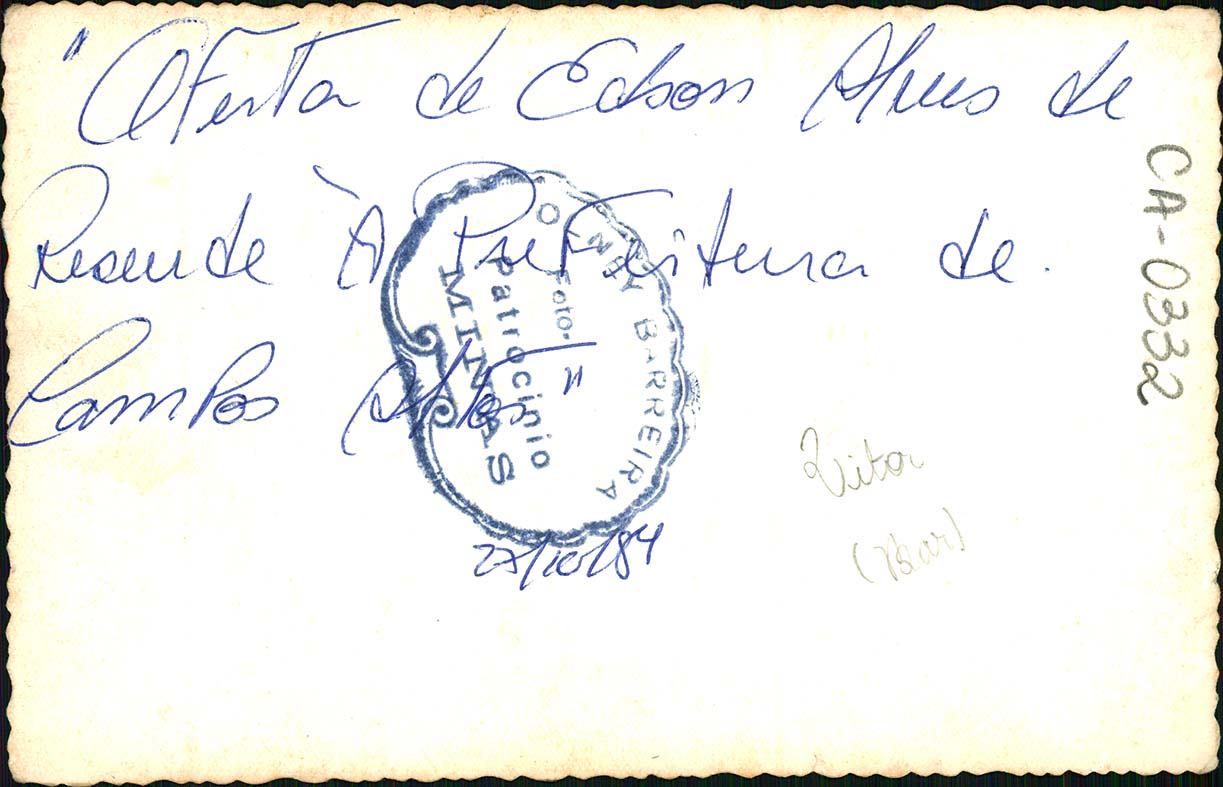 "Oferta de Edson Alves de
Resende À Prefeitura de.
Campos Altos"
27/10/84
BARREIRA
Foto-
Patrocinio
MINAS
CA-0332
(Bar)